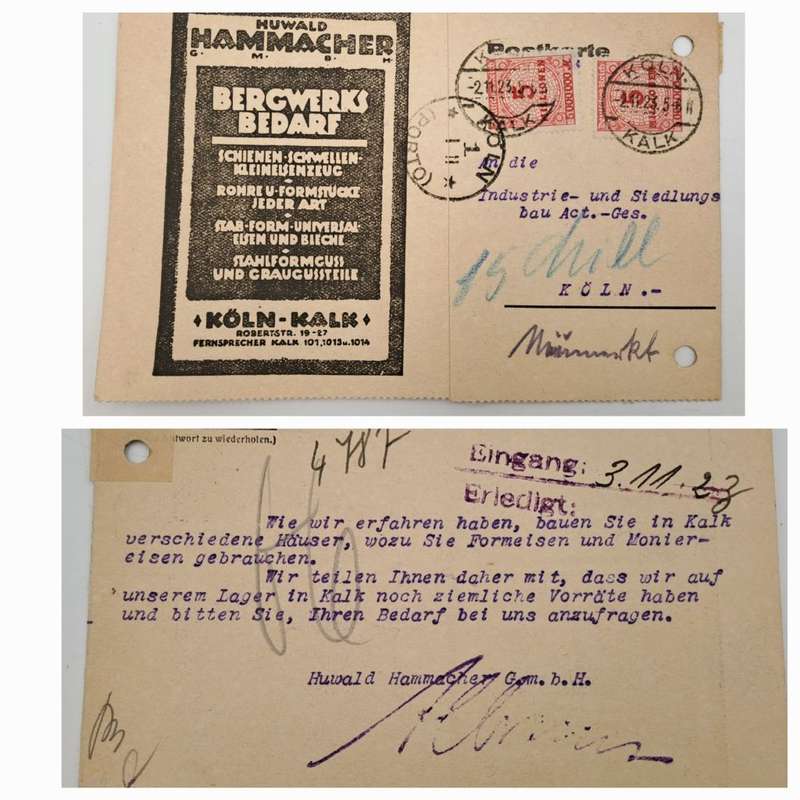 HUWALD
HAMMACHER
G·M·B·H
BERGWERKS
BEDARF
SCHIENEN-SCHWELLEN-
KLEINEISENZEUG
ROHRE U-FORMSTÜCKE
JEDER ART
STAB-FORM-UNIVERSAL-
EISEN UND BLECHE
STAHLFORMGUSS
UND GRAUGUSSTEILE
♦KÖLN-KALK♦
ROBERTSTR. 19-27
FERNSPRECHER KALK 101, 1013 u. 1014
Postkarte
KÖLN-
-2.11.23.5-
KALK
KÖLN-
-2.11.23.5-
KALK
KÖLN
1
11
(PORTO)
An die
Industrie- und Siedlungs
bau Act.-Ges.
15
KÖLN.-
Neumarkt
twort zu wiederholen.)
4787
Eingang: 3.11.23
Erledigt:
Wie wir erfahren haben, bauen Sie in Kalk
verschiedene Häuser, wozu Sie Formeisen und Monier-
eisen gebrauchen.
Wir teilen Ihnen daher mit, dass wir auf
unserem Lager in Kalk noch ziemliche Vorräte haben
und bitten Sie, Ihren Bedarf bei uns anzufragen.
Huwald Hammacher G.m.b.H.